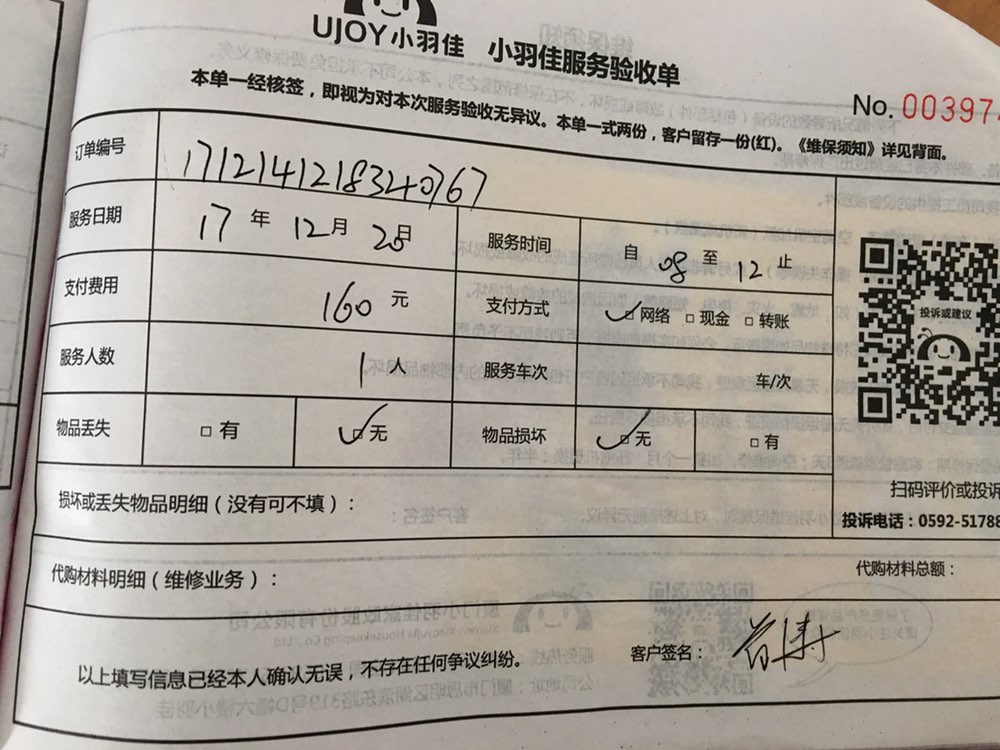 UJOY小羽佳 小羽佳服务验收单
本单一经核签，即视为对本次服务验收无异议。本单一式两份，客户留存一份(红)。《维保须知》详见背面。
No. 00397
订单编号 17121412183240767
服务日期 17 年 12 月 25 日 服务时间 自 08 至 12 止
支付费用 160 元 支付方式 ☑网络 □现金 □转账
服务人数 1 人 服务车次 车/次
物品丢失 □有 ☑无 物品损坏 ☑无 □有
投诉或建议
扫码评价或投诉
损坏或丢失物品明细（没有可不填）：
投诉电话：0592-51788
代购材料明细（维修业务）： 代购材料总额：
以上填写信息已经本人确认无误，不存在任何争议纠纷。 客户签名：